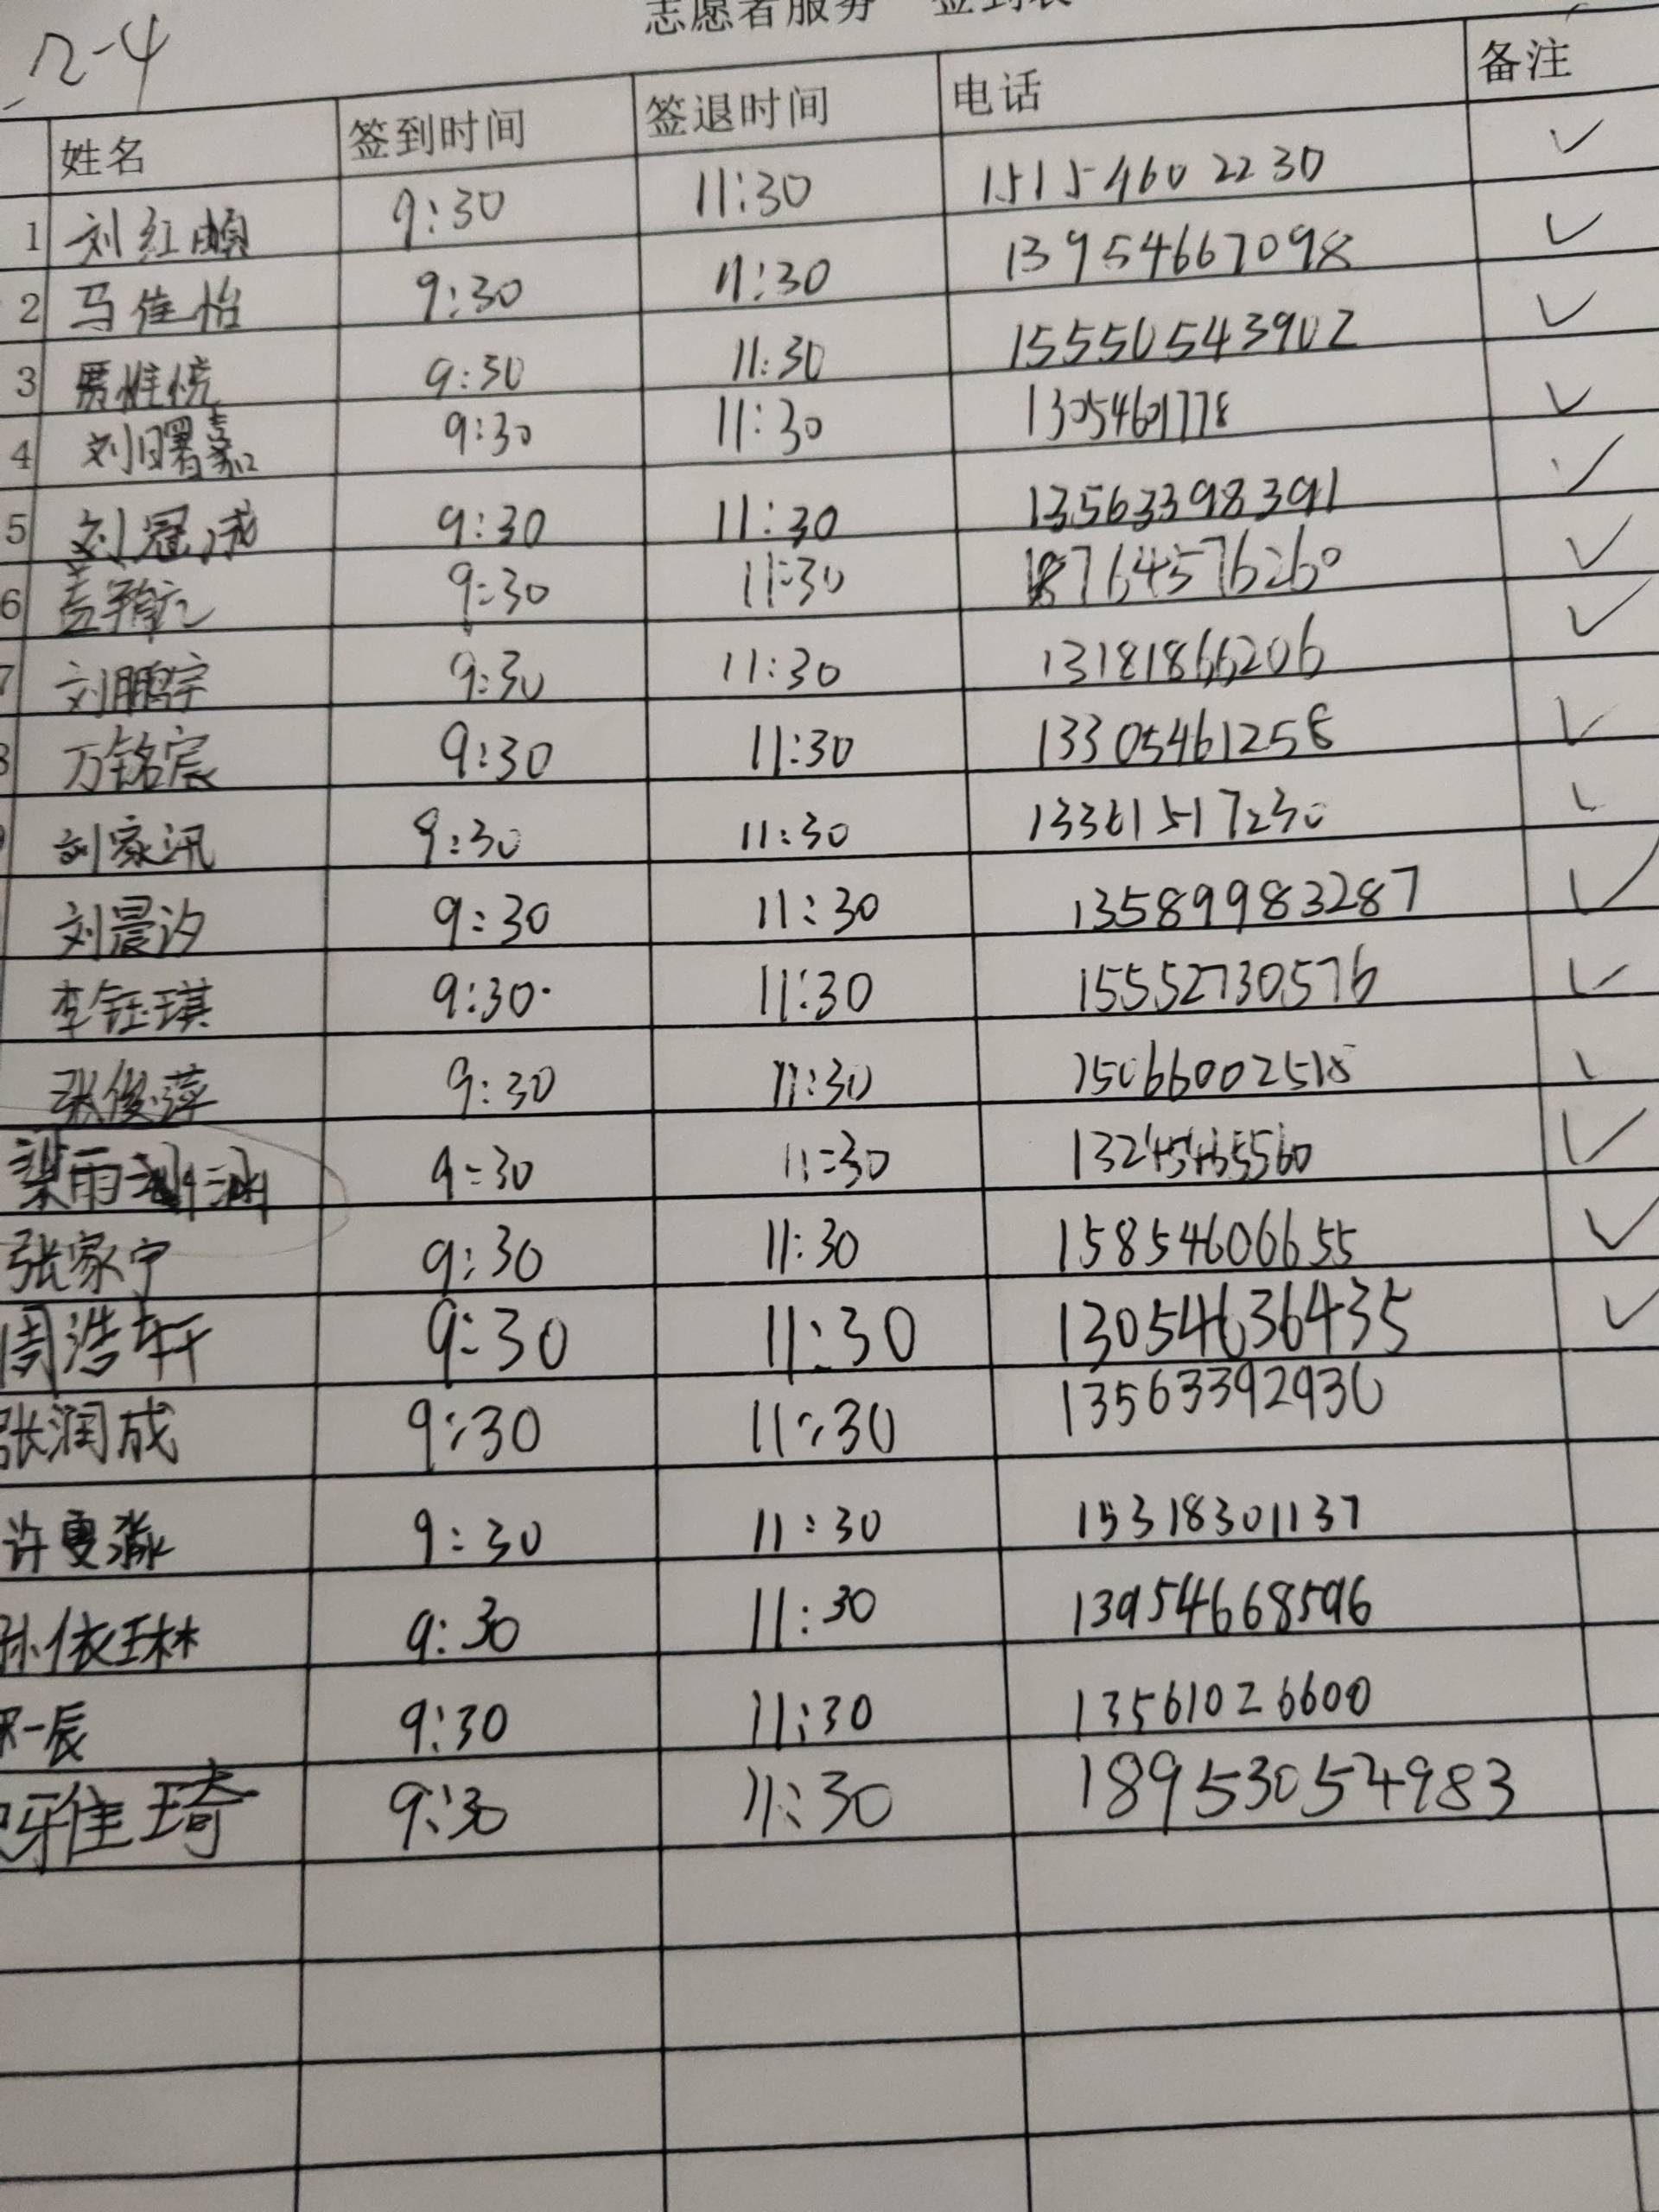 2-4
志愿者服务 签到表
姓名 签到时间 签退时间 电话 备注
1 刘红 9:30 11:30 15154602230 ✓
2 马佳怡 9:30 11:30 13954667098 ✓
3 贾惟悦 9:30 11:30 15550543902 ✓
4 刘曙嘉 9:30 11:30 13054601778 ✓
5 刘冠成 9:30 11:30 13563398391 ✓
6 9:30 11:30 18764576260 ✓
7 刘鹏宇 9:30 11:30 13181866206 ✓
8 万铭宸 9:30 11:30 13305461258 ✓
刘家汛 9:30 11:30 13361517230 ✓
刘晨汐 9:30 11:30 13589983287 ✓
李钰琪 9:30 11:30 15552730576 ✓
张俊萍 9:30 11:30 15066002518 ✓
梁雨涵 9:30 11:30 13245465560 ✓
张家宁 9:30 11:30 15854606655 ✓
周浩轩 9:30 11:30 13054636435 ✓
张润成 9:30 11:30 13563392930
许曼淼 9:30 11:30 15318301137
孙依琳 9:30 11:30 13954668596
一辰 9:30 11:30 13561026600
雅琦 9:30 11:30 18953054983